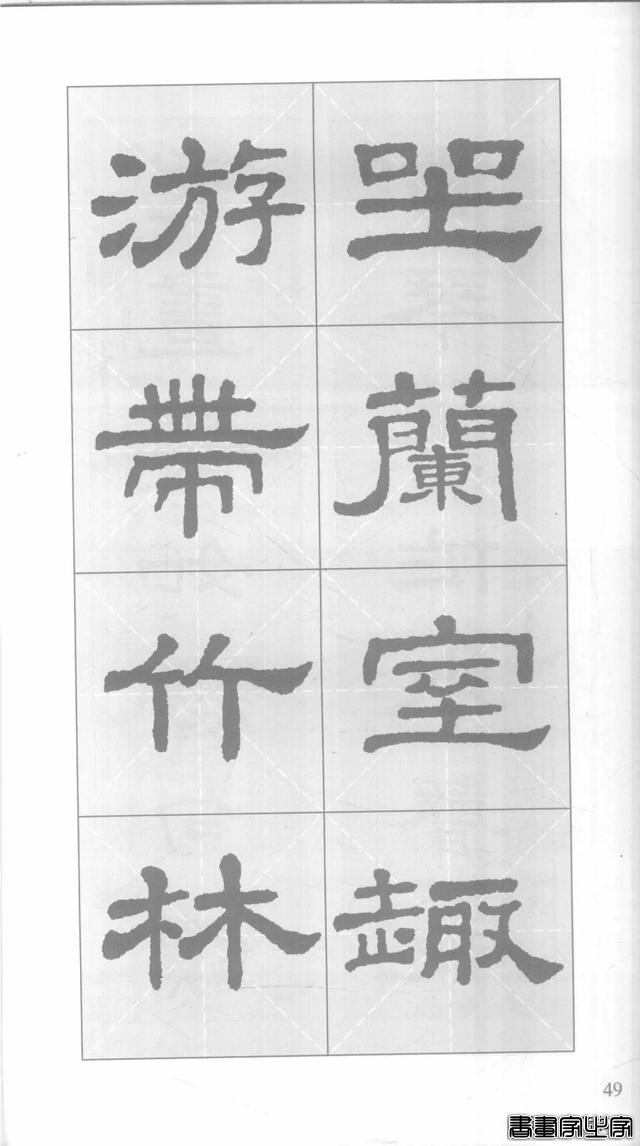 坐蘭室趣
游帶竹林
49
書畫家之家